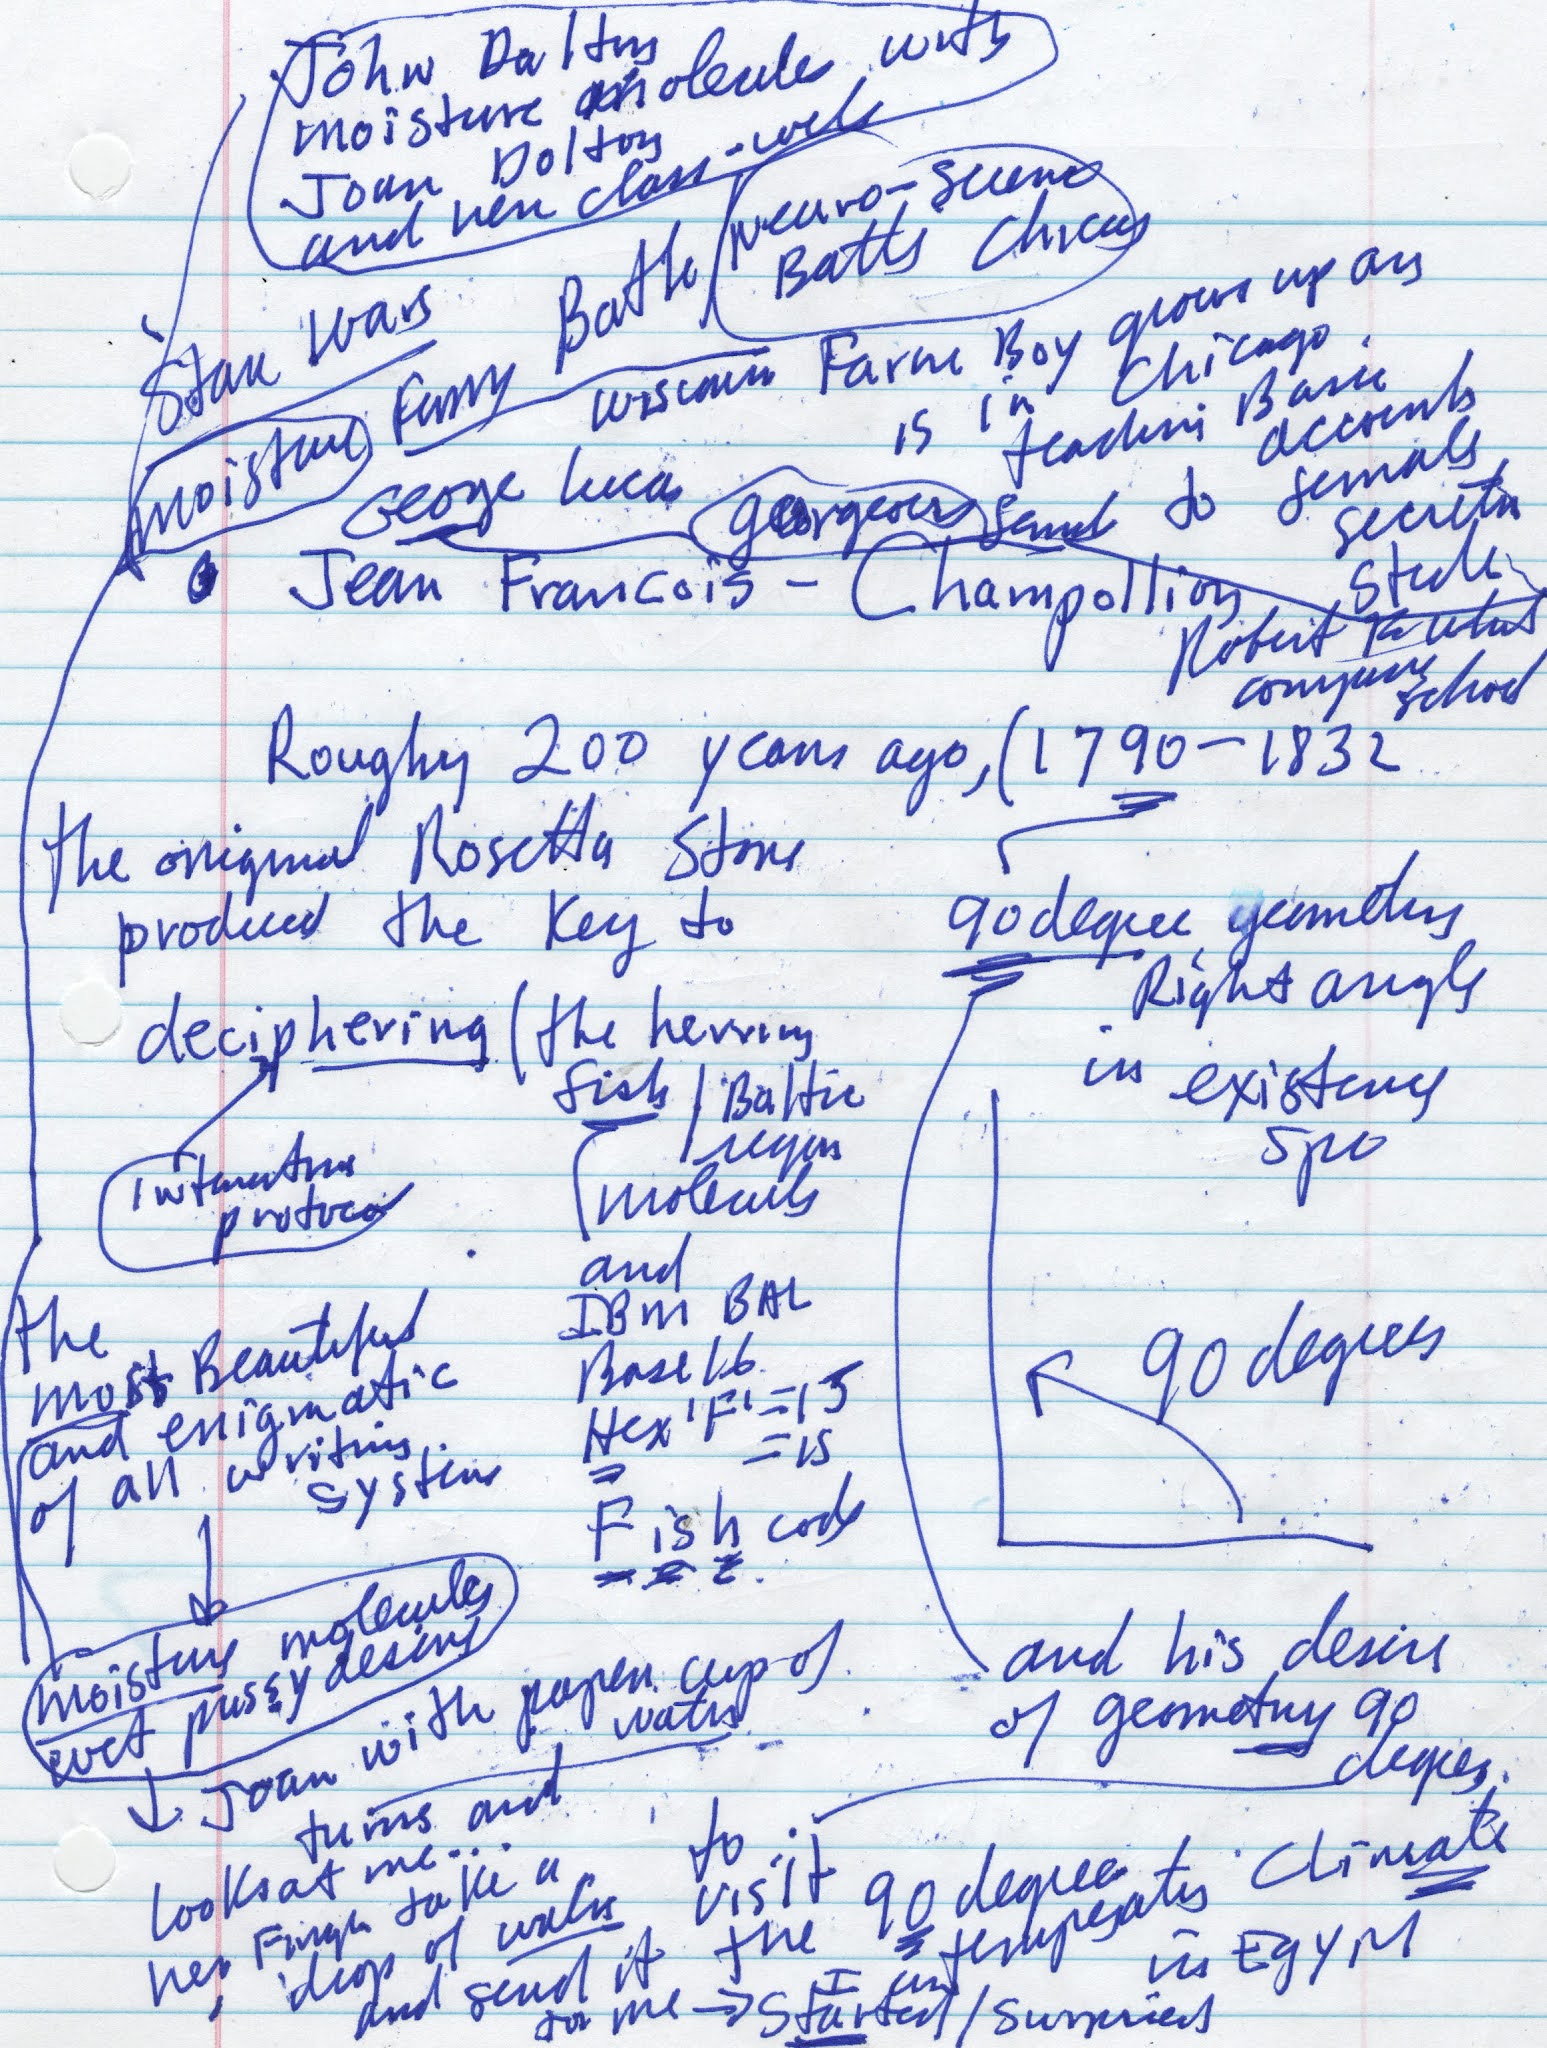 John Dalton
moisture molecules with
Joan Dalton
and her class-web
Neuro-science
Batts Chicas
Star Wars
Furry Battle
moisture
Wisconsin Farm Boy grows up ans
is in Chicago.
teaching Basic
accounts
George Lucas
gorgeous send to females
secretia
Jean Francois - Champollion
Robert
company school
Roughly 200 years ago, (1790-1832
the original Rosetta Stone
produced the Key to
deciphering (the herring
fish / Baltic
region
molecules
and
IBM BAL
Base 16
Hex 'F' = 15
= 15
Fish code
internation
protocol
90 degree geometry
Right angle
in existence
90 degrees
the
most Beautiful
and enigmatic
of all writing
systems
moisture molecules
wet pussy desire
Joan with paper cup of
water
turns and
looks at me...
her finger take a
drop of water
and send it
to me → I am
Started / Surprised
and his desire
of geometry 90
degrees.
to
visit
the 90 degree
temperate climate
in Egypt